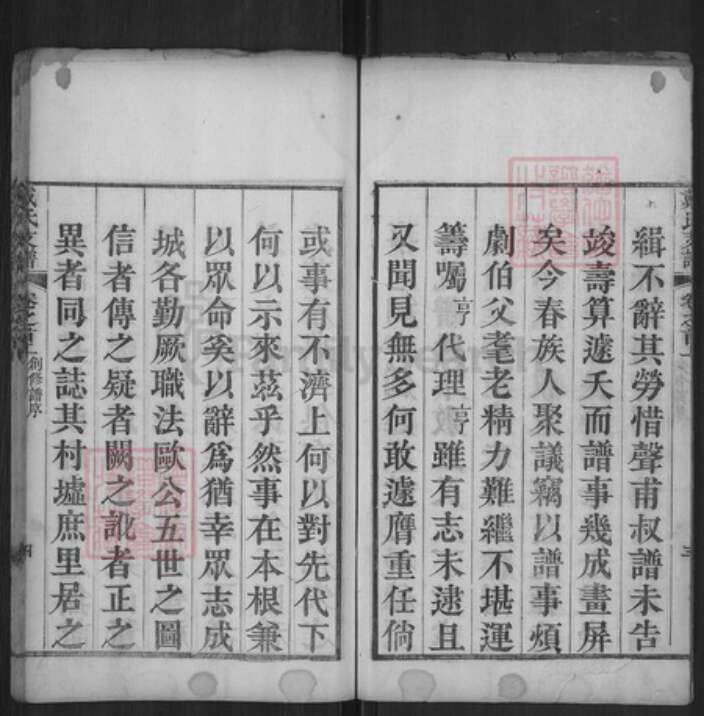 緝不辭其勞惜聲甫叔譜未告
竣壽算遽夭而譜事幾成畫屏
矣今春族人聚議竊以譜事煩
劇伯父耄老精力難繼不堪運
籌囑亨代理亨雖有志未逮且
又聞見無多何敢遽膺重任倘
或事有不濟上何以對先代下
何以示來茲乎然事在本根兼
以眾命奚以辭爲猶幸眾志成
城各勤厥職法歐公五世之圖
信者傳之疑者闕之訛者正之
異者同之誌其村墟庶里居之
卷之首 創修譜序
四